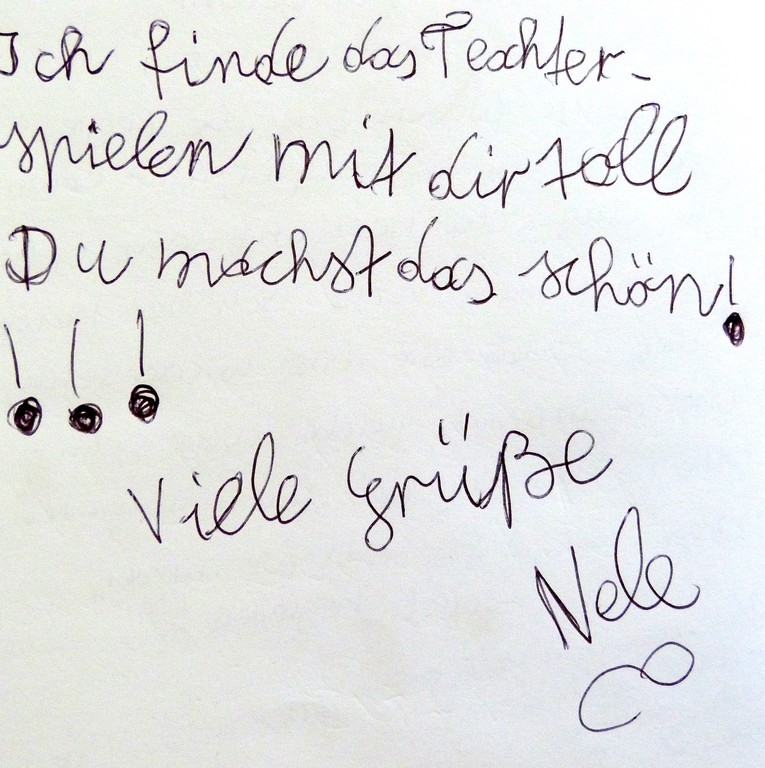 Ich finde das Teachter-
spielen mit dir toll
Du machst das schön!
! ! !
Viele Grüße
Nele